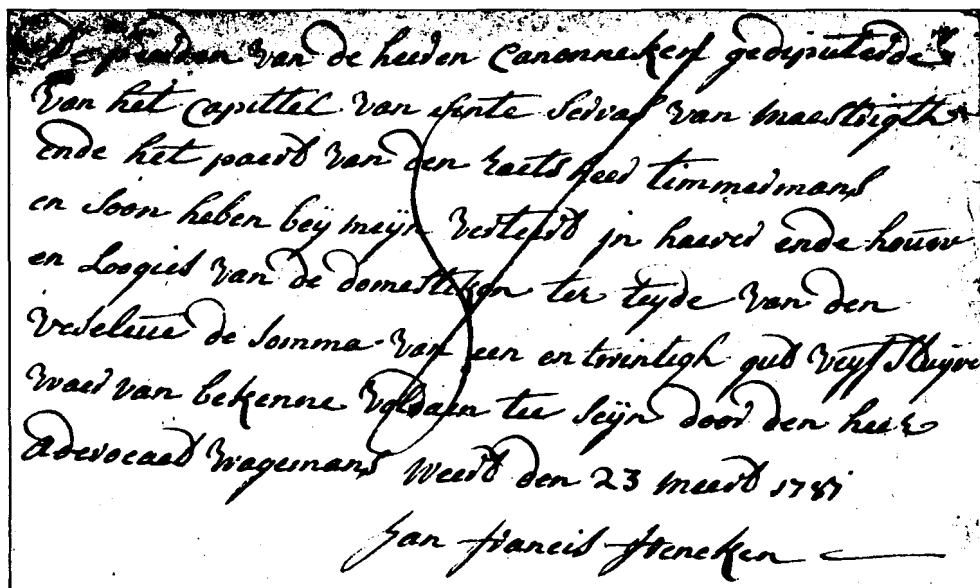 De peerden van de heeren Canonneken gedeputeerdes
van het capittel van sinte servas van maestrigth
ende het peert van den raets heer timmermans
en soon heben bey meyn verteert jn haever ende houw
en Loogies van de domestiken ter teyde van den
de somma van een en twintigh gul veyf stuyve
waer van bekenne voldaen tee seyn door den heer
advocaet wagemans weert den 23 meert 1787
Jan francis